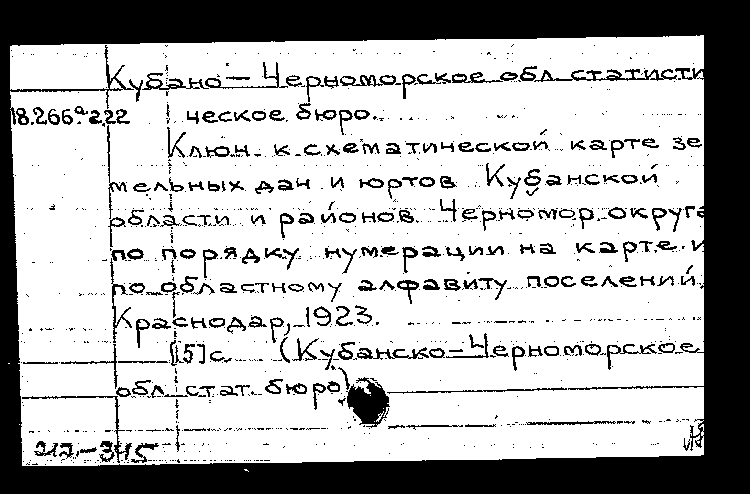 Кубано-Черноморское обл статисти
18.266.а222 ческое бюро.
Ключ к схематической карте зе
мельных дач и юртов Кубанской
области и районов Черномор. округа
по порядку нумерации на карте и
по областному алфавиту поселений.
Краснодар, 1923.
[15] с. (Кубанско-Черноморское
обл. стат. бюро)
212-345